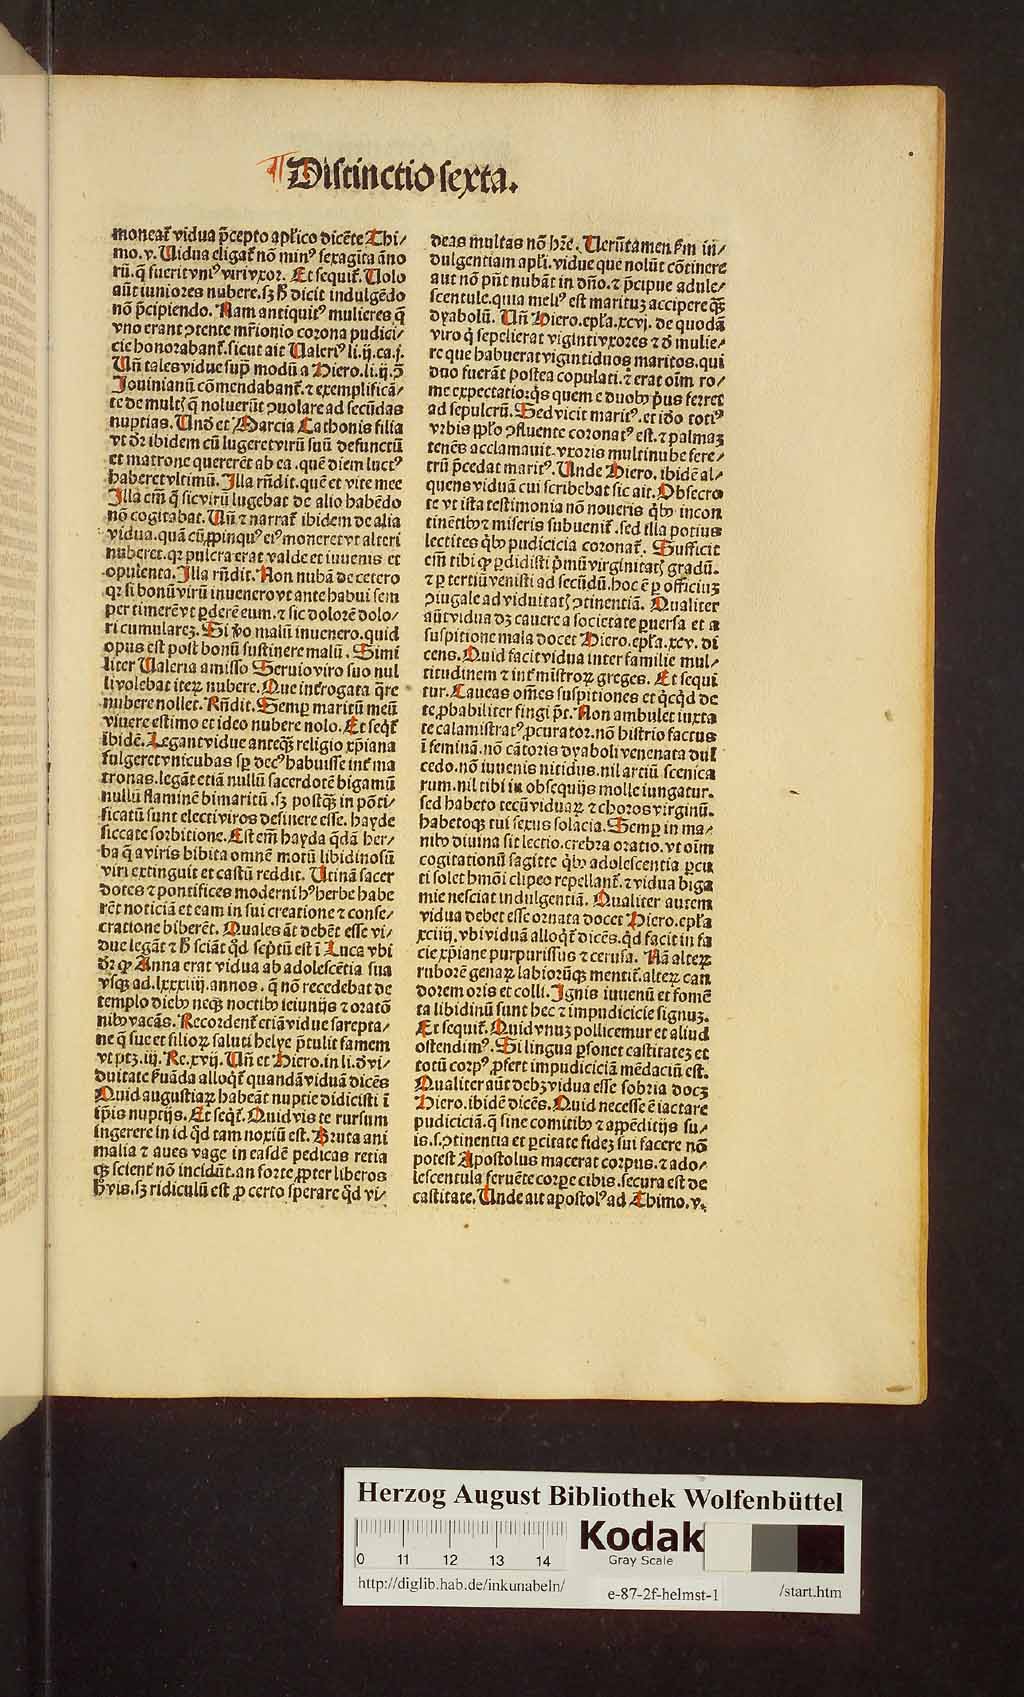 Distinctio sexta.
moneat᷑ vidua p̄cepto apl̓ico dicēte Thi/
mo. v. Uidua eligat᷑ nō minꝰ sexagīta āno
rū. q̄ fuerit vniꝰ viri vxor. Et sequit᷑. Uolo
aūt iuniores nubere. sꝫ ħ dicit indulgēdo
nō p̄cipiendo. Nam antiquitꝰ mulieres q̄
vno erant ꝯtente mr̄ionio corona pudici/
cie honorabant᷑. sicut ait Ualeriꝰ li. ij. ca. j.
Uñ tales vidue supᷓ modū a Hiero. li. ij. ꝯ̄
Jouinianū cōmendabant᷑. ⁊ exemplificā/
te de multꝭ q̄ noluerūt ꝯuolare ad secūdas
nuptias. Und et Marcia Cathonis filia
vt dr̄ ibidem cū lugeret virū suū defunctū
et matrone quererēt ab ea. quē diem luctꝰ
haberet vltimū. Illa rn̄dit. quē et vite mee
Illa em̄ q̄ sic virū lugebat de alio habēdo
nō cogitabat. Uñ ⁊ narrat᷑ ibidem de alia
vidua. quā cū ꝓpinquꝰ eiꝰ moneret vt alteri
nuberet. qꝛ pulcra erat valde et iuuenis et
opulenta. Illa rn̄dit. Non nubā de cetero
qꝛ si bonū virū inuenero vt ante habui sem
per timerē vt ꝑderē eum. ⁊ sic dolorē dolo/
ri cumulareꝫ. Si v̓o malū inuenero. quid
opus est post bonū sustinere malū. Simi
liter Ualeria amisso Seruio viro suo nul
li volebat iteꝝ nubere. Que int̓rogata q̄re
nubere nollet. Rn̄dit. Semꝑ maritū meū
viuere estimo et ideo nubere nolo. Et seqt᷑
ibidē. Legant vidue anteqꝫ religio xp̄iana
fulgeret vnicubas sꝑ decꝰ habuisse int̓ ma
tronas. legāt etiā nullū sacerdotē bigamū
nullū flaminē bimaritū. sꝫ postqꝫ in pōti/
ficatū sunt electi viros desinere esse. hayde
siccate sorbitione. Est em̄ hayda q̄dā her/
ba q̄ a viris bibita omnē motū libidinosū
viri extinguit et castū reddit. Utinā sacer
dotes ⁊ pontifices moderni hꝰ herbe habe
rēt noticiā et eam in sui creatione ⁊ conse/
cratione biberēt. Quales āt debēt esse vi/
due legāt ⁊ ħ sciāt qd̓ sc̓ptū est ī Luca vbi
dr̄ ꝙ Anna erat vidua ab adolescētia sua
vsqꝫ ad. lxxxiiij. annos. q̄ nō recedebat de
templo dieb᷒ neqꝫ noctib᷒ ieiunijs ⁊ oratō
nib᷒ vacās. Recordent᷑ etiā vidue sarepta/
ne q̄ sue et filioꝝ saluti helye p̄tulit famem
vt ptꝫ. iij. Re. xvij. Uñ et Hiero. in li. d̓ vi/
duitate f̓uāda alloqt᷑ quandā viduā dicēs
Quid augustiaꝝ habeāt nuptie didicisti ī
ip̄is nuptijs. Et seqt᷑. Quid vis te rursum
ingerere in id qd̓ tam noxiū est. Bruta ani
malia ⁊ aues vage in easdē pedicas retia
qꝫ scient᷑ nō incidūt. an forte ꝓpter liberos
h̓ vis. sꝫ ridiculū est ꝓ certo sperare qd̓ vi/
deas multas nō hr̄e. Uerūtamen ẜm in/
dulgentiam apl̓i. vidue que nolūt cōtinere
aut nō pn̄t nubāt in dn̄o. ⁊ p̄cipue adule/
scentule. quia meliꝰ est marituꝫ accipere qꝫ
dyabolū. Uñ Hiero. epl̓a. xcvj. de quodā
viro q̄ sepelierat viginti vxores ⁊ d̓ mulie/
re que habuerat viginti duos maritos. qui
duo fuerāt postea copulati. ⁊ erat oīm ro/
me expectatio: q̇s quem e duob᷒ pr̓us ferret
ad sepulcrū. Sed vicit maritꝰ. et id̓o totiꝰ
vrbis pplo ꝯfluente coronatꝰ est. ⁊ palmaꝫ
tenēs acclamauit. vxoris multinube fere/
trū p̄cedat maritꝰ. Unde Hiero. ibidē al/
quens viduā cui scribebat sic ait. Obsecro
te vt ista testimonia nō noueris qb᷒ incon
tinētib᷒ ⁊ miseris subuenit᷑. sed illa potius
lectites qb᷒ pudicicia coronat᷑. Sufficit
em̄ tibi ꝙ ꝑdidisti p̓mū virginitatꝭ gradū.
⁊ ꝑ tertiū venisti ad secūdū. hoc ē ꝑ officiuꝫ
ꝯiugale ad viduitatꝭ ꝯtinentiā. Qualiter
aūt vidua dꝫ cauere a societate ꝑuersa et a
suspitione mala docet Hiero. epl̓a. xcv. di
cens. Quid facit vidua inter familie mul/
titudinem ⁊ int̓ mīstroꝝ greges. Et sequi
tur. Caueas om̄es suspitiones et qcqd̓ de
te ꝓbabiliter fingi pt̄. Non ambulet iuxta
te calamistratꝰ ꝓcurator. nō histrio factus
ī feminā. nō cātoris dyaboli venenata dul
cedo. nō iuuenis nitidus. nil artiū scenica
rum. nil tibi in obsequijs molle iungatur.
sed habeto tecū viduaꝝ ⁊ choros virginū.
habetoqꝫ tui sexus solacia. Semꝑ in ma/
nib᷒ diuina sit lectio. crebra oratio. vt oīm
cogitationū sagitte qb᷒ adolescentia ꝑcu
ti solet hmōi clipeo repellant᷑. ⁊ vidua biga
mie nesciat indulgentiā. Qualiter autem
vidua debet esse ornata docet Hiero. epl̓a
xciiij. vbi viduā alloqt᷑ dicēs. qd̓ facit in fa
cie xp̄iane purpurissus ⁊ cerusa. Nā alteꝝ
ruborē genaꝝ labiorūqꝫ mentit᷑. alteꝝ can
dorem oris et colli. Ignis iuuenū et fomē
ta libidinū sunt hec ⁊ impudicicie signuꝫ.
Et sequit᷑. Quid vnuꝫ pollicemur et aliud
ostendimꝰ. Si lingua ꝑsonet castitateꝫ et
totū corpꝰ ꝓfert impudiciciā mēdaciū est.
Qualiter aūt debꝫ vidua esse sobria docꝫ
Hiero. ibidē dicēs. Quid necesse ē iactare
pudiciciā. q̄ sine comitib᷒ ⁊ appēditijs su/
is. s. ꝯtinentia et ꝑcitate fideꝫ sui facere nō
potest Apostolus macerat corpus. ⁊ ado/
lescentula feruēte corpe cibis. secura est de
castitate. Unde ait apostolꝰ ad Thimo. v.
Herzog August Bibliothek Wolfenbüttel
0 11 12 13 14
Kodak
Gray Scale
http://diglib.hab.de/inkunabeln/ e-87-2f-helmst-1 /start.htm